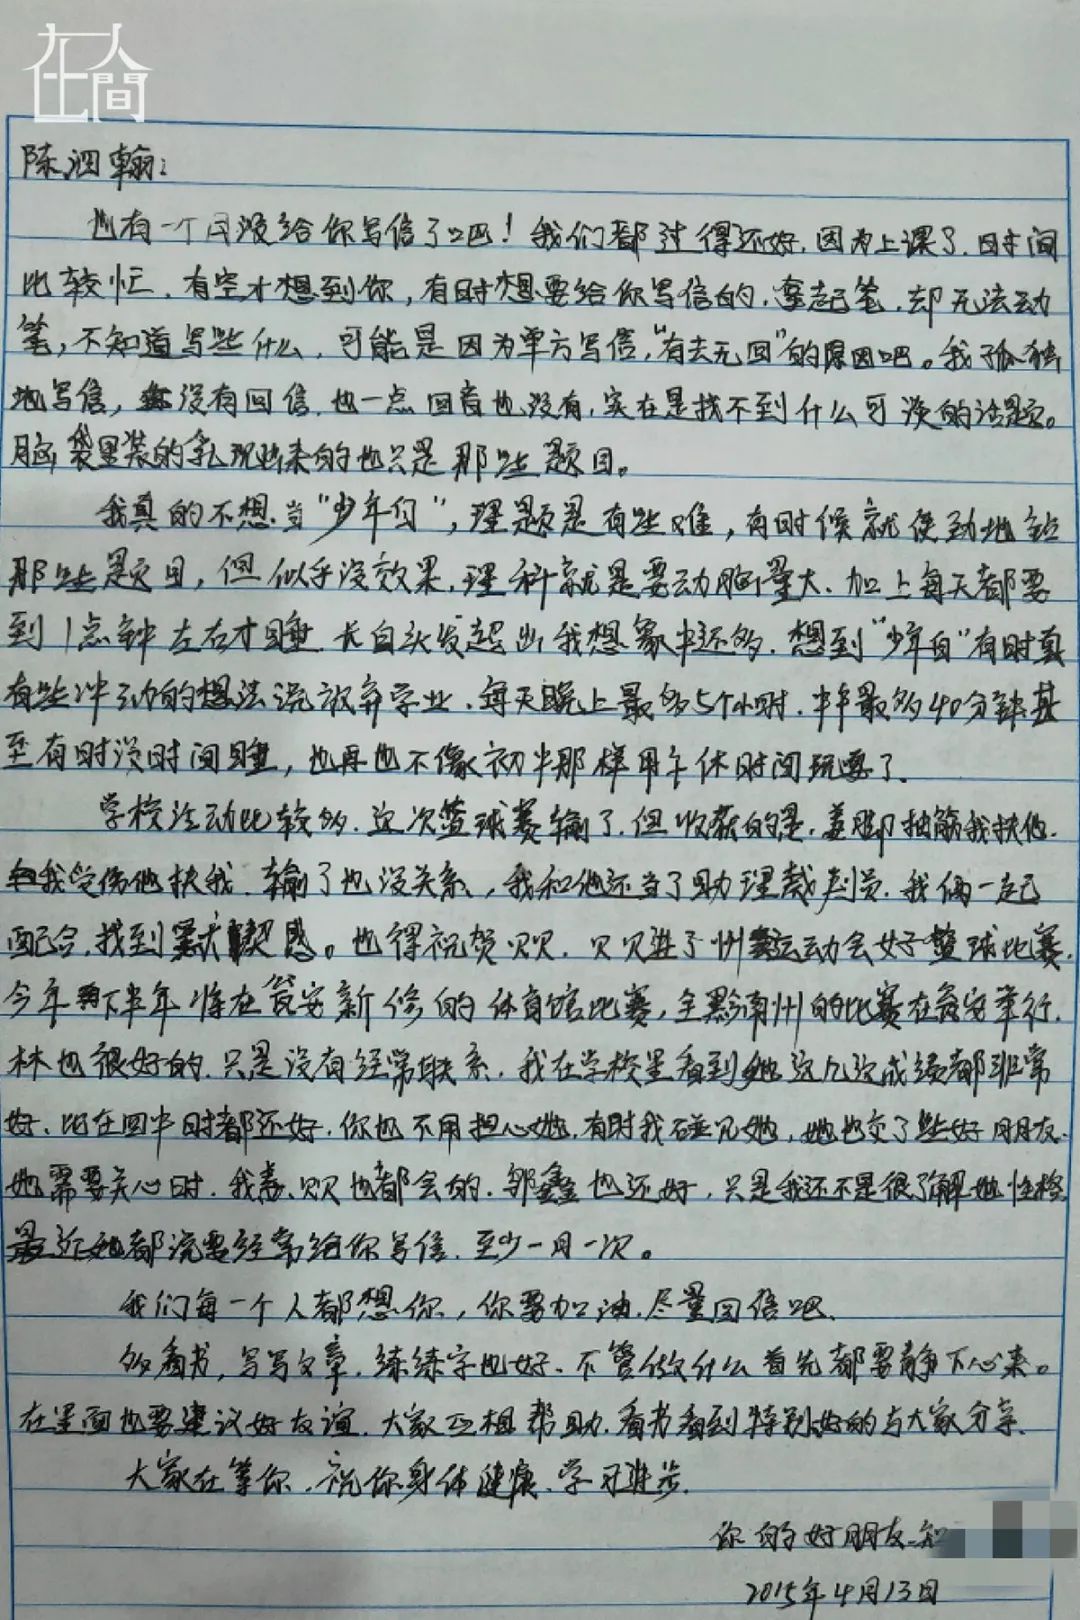 在人間
陈泗翰：
也有一个月没给你写信了吧！我们都过得还好，因为上课了，时间
比较忙，有空才想到你，有时想要给你写信的，拿起笔，却无法动
笔，不知道写些什么，可能是因为单方写信，“有去无回”的原因吧。我孤独
地写信，没有回信，也一点回音也没有，实在是找不到什么可谈的话题。
脑袋里装的乳现出来的也只是那些题目。
我真的不想当“少年白”，理题是有些难，有时候就使劲地钻
那些题目，但似乎没效果，理科就是要动脑量大，加上每天都要
到1点钟左右才睡，长白头发超出我想象中还多，想到“少年白”有时真
有些冲动的想法说放弃学业，每天晚上最多5个小时，中午最多40分钟甚
至有时没时间睡，也再也不像初中那样用午休时间玩耍了。
学校活动比较多，这次篮球赛输了，但收获的是，姜脚抽筋我扶他，
我受伤他扶我，输了也没关系，我和他还当了助理裁判员，我俩一起
配合，找到默契感。也得祝贺贝贝，贝贝进了州运动会女子篮球比赛，
今年下半年将在瓮安新修的体育馆比赛，全黔南州的比赛在瓮安举行，
林也很好的，只是没有经常联系，我在学校里看到她这几次成绩都非常
好，比在四中时都还好，你也不用担心她，有时我碰见她，她也交了些好朋友，
她需要关心时，我、贝贝也都会的，邹鑫也还好，只是我还不是很了解她性格，
最近她都说要经常给你写信，至少一月一次。
我们每一个人都想你，你要加油，尽量回信吧、
多看书，写写文章，练练字也好、不管做什么首先都要静下心来。
在里面也要建议好友谊，大家互相帮助，看书看到特别好的与大家分享，
大家在等你，祝你身体健康、学习进步，
你的好朋友：知
2015年4月13日